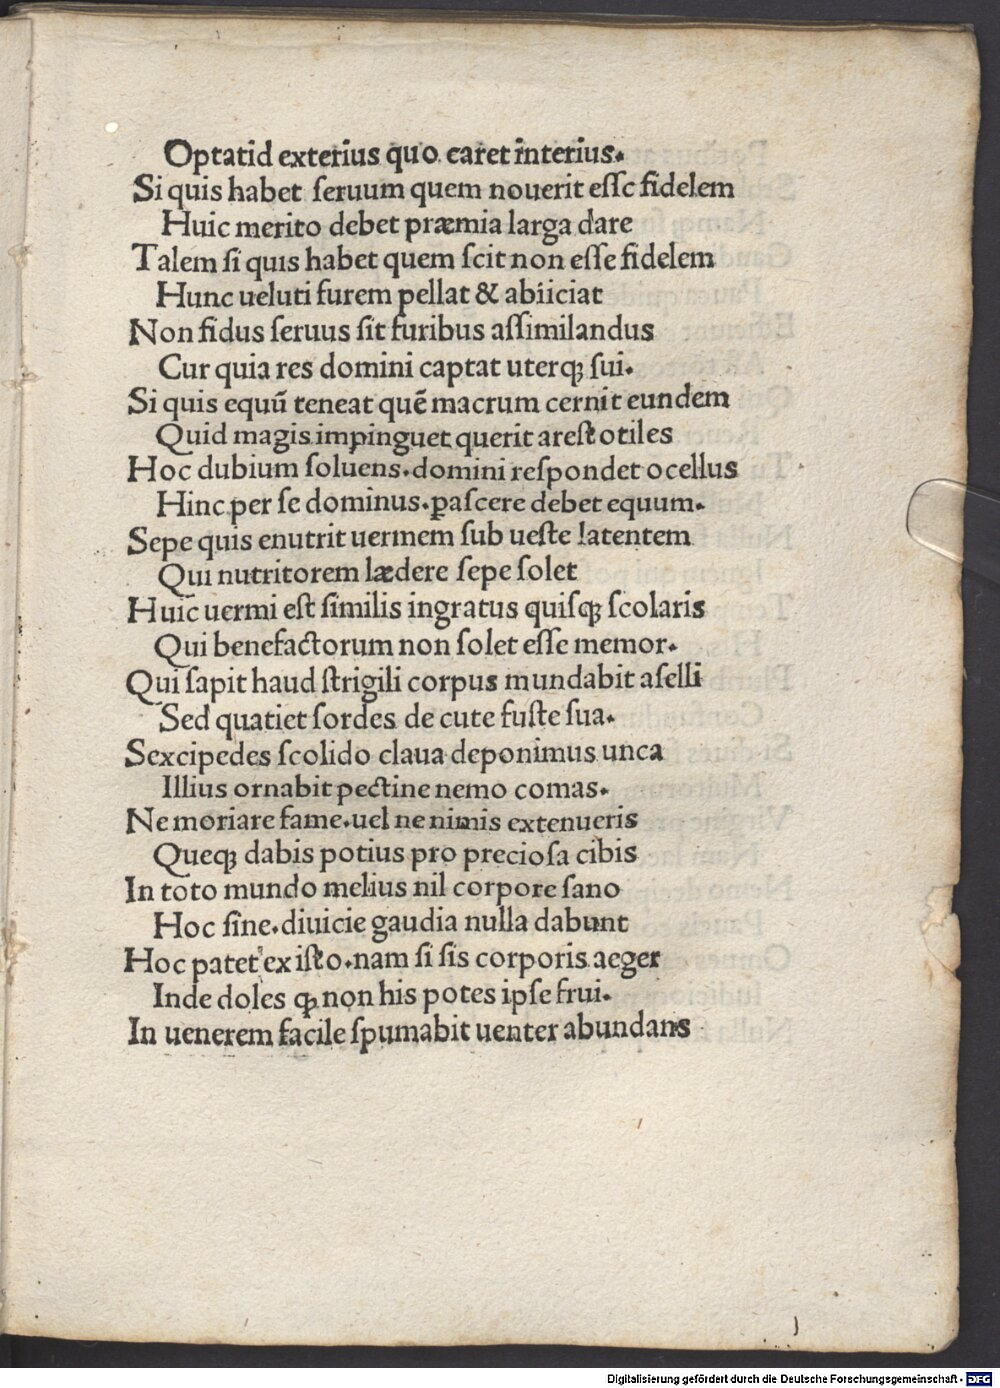 Optatid exterius quo caret interius.
Si quis habet seruum quem nouerit esse fidelem
Huic merito debet præmia larga dare
Talem si quis habet quem scit non esse fidelem
Hunc ueluti furem pellat & abiiciat
Non fidus seruus sit furibus assimilandus
Cur quia res domini captat uterqꝫ sui.
Si quis equū teneat quē macrum cernit eundem
Quid magis impinguet querit arestotiles
Hoc dubium soluens.domini respondet ocellus
Hinc per se dominus.pascere debet equum.
Sepe quis enutrit uermem sub ueste latentem
Qui nutritorem lædere sepe solet
Huic uermi est similis ingratus quisqꝫ scolaris
Qui benefactorum non solet esse memor.
Qui sapit haud strigili corpus mundabit aselli
Sed quatiet sordes de cute fuste sua.
Sexcipedes scolido claua deponimus unca
Illius ornabit pectine nemo comas.
Ne moriare fame.uel ne nimis extenueris
Queqꝫ dabis potius pro preciosa cibis
In toto mundo melius nil corpore sano
Hoc sine.diuicie gaudia nulla dabunt
Hoc patet ex isto.nam si sis corporis aeger
Inde doles ꝙ non his potes ipse frui.
In uenerem facile spumabit uenter abundans
Digitalisierung gefördert durch die Deutsche Forschungsgemeinschaft - DFG